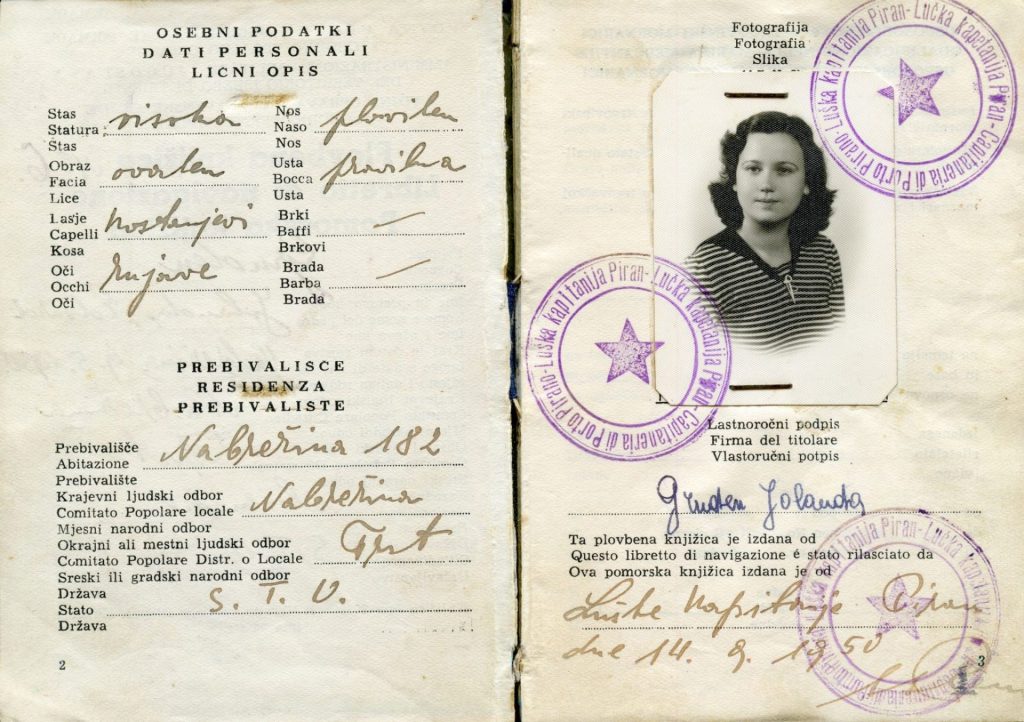 OSEBNI PODATKI
DATI PERSONALI
LIČNI OPIS
Stas Nos
Statura visoka Naso plovilen
Štas Nos
Obraz Usta
Facia ovalen Bocca pravilna
Lice Usta
Lasje Brki
Capelli kostanjevi Baffi —
Kosa Brkovi
Oči Brada
Occhi rujave Barba —
Oči Brada
PREBIVALIŠČE
RESIDENZA
PREBIVALIŠTE
Prebivališče
Abitazione Nabrežina 182
Prebivalište
Krajevni ljudski odbor
Comitato Popolare locale Nabrežina
Mjesni narodni odbor
Okrajni ali mestni ljudski odbor
Comitato Popolare Distr. o Locale Trst
Sreski ili gradski narodni odbor
Država
Stato S. T. O.
Država
2
Fotografija
Fotografia
Slika
Luška kapitanija Piran-Lučka kapetanija Piran-Capitaneria di Porto Pirano-
Luška kapitanija Piran-Lučka kapetanija Piran-Capitaneria di Porto Pirano-
Lastnoročni podpis
Firma del titolare
Vlastoručni potpis
Gruden Jolanda
Ta plovbena knjižica je izdana od
Questo libretto di navigazione é stato rilasciato da
Ova pomorska knjižica izdana je od
Luške kapitanije Piran
dne 14. 9. 1950
Luška kapitanija Piran-Lučka kapetanija Piran-Capitaneria di Porto Pirano-
3